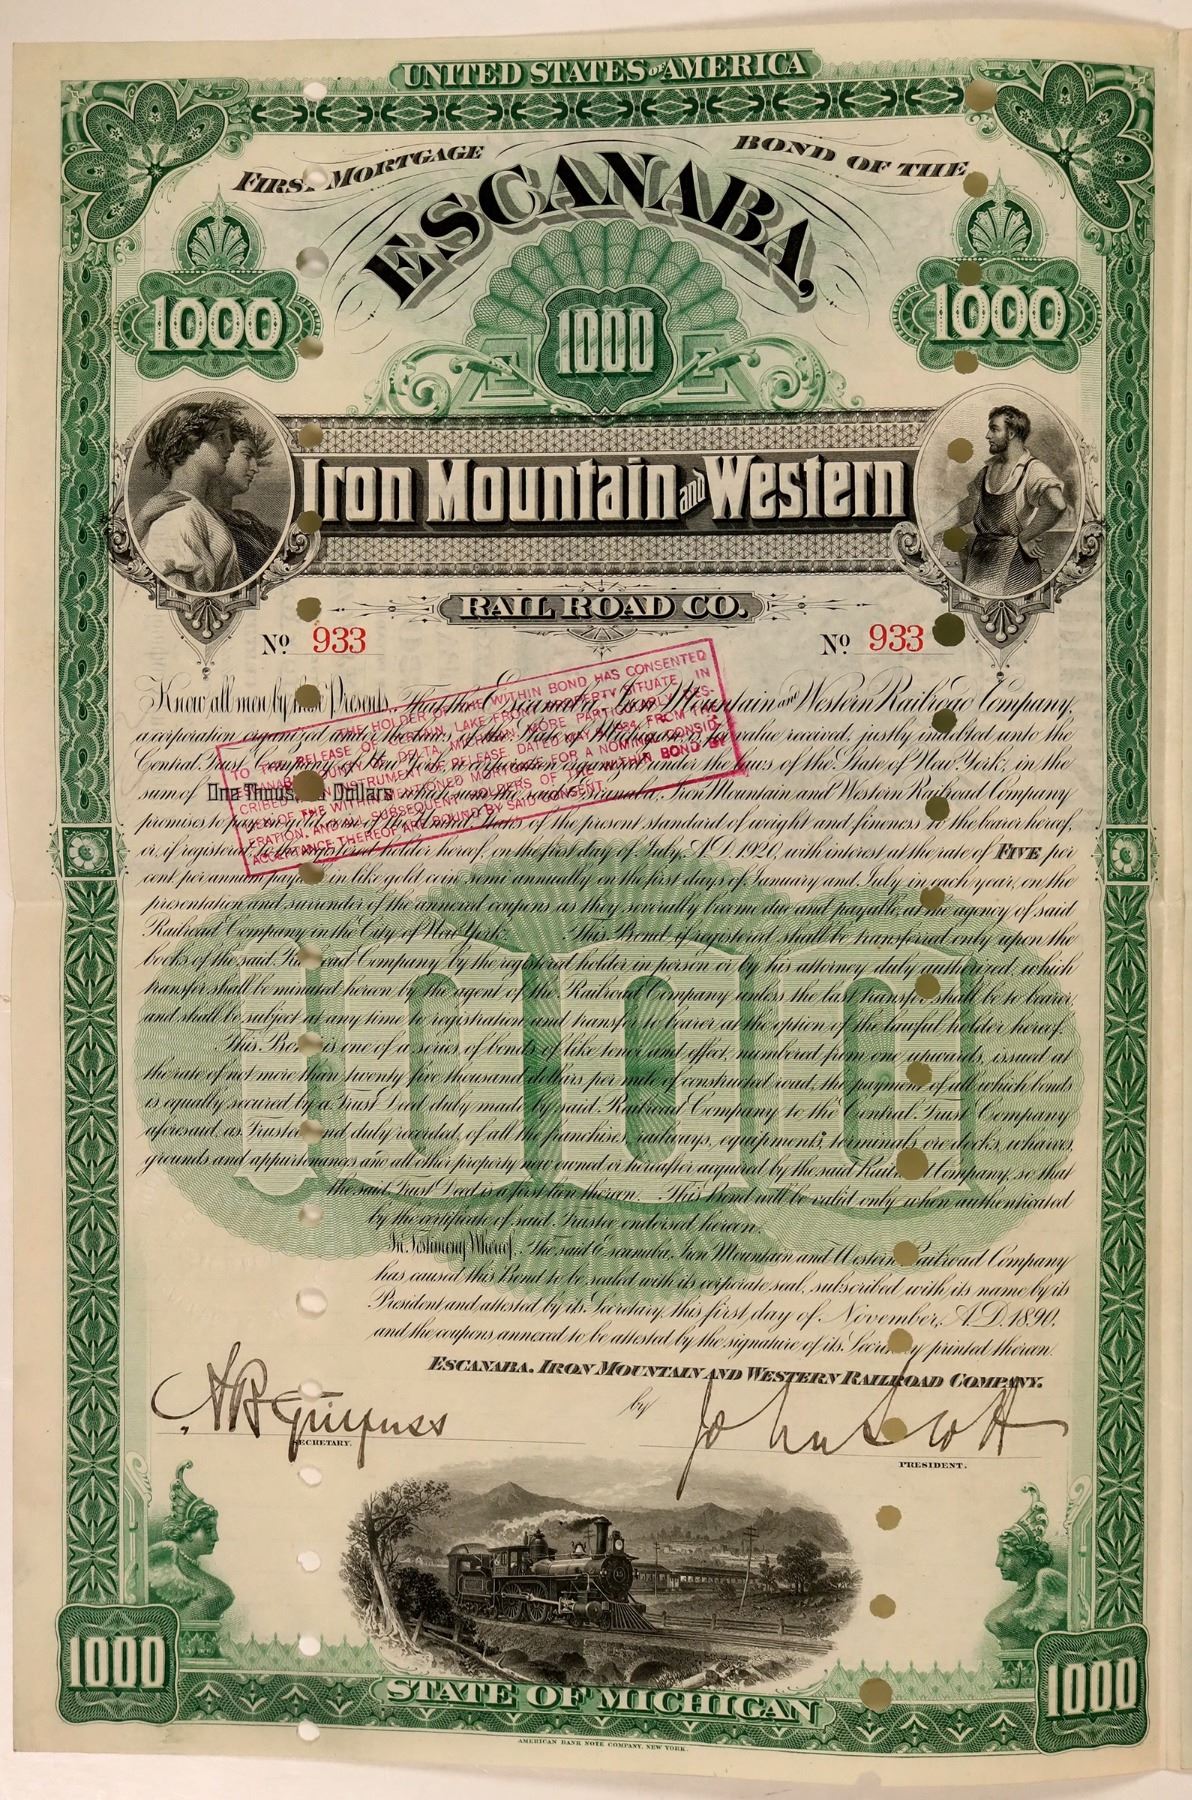 UNITED STATES OF AMERICA
FIRST MORTGAGE BOND OF THE
ESCANABA,
1000 1000 1000
Iron Mountain and Western
RAIL ROAD CO.
No 933 No 933
Know all men by these Presents, That the Escanaba, Iron Mountain and Western Railroad Company,
a corporation organized under the laws of the State of Michigan, for value received, justly indebted unto the
Central Trust Company of New York, a corporation organized under the laws of the State of New York, in the
sum of One Thousand Dollars which sum the said Escanaba, Iron Mountain and Western Railroad Company
promises to pay in gold coin of the United States of the present standard of weight and fineness to the bearer hereof,
or, if registered, to the registered holder hereof, on the first day of July, A.D. 1920, with interest at the rate of FIVE per
cent per annum payable in like gold coin semi annually on the first days of January and July in each year, on the
presentation and surrender of the annexed coupons as they severally become due and payable, at the agency of said
Railroad Company in the City of New York. This Bond if registered shall be transferred only upon the
books of the said Railroad Company by the registered holder in person or by his attorney duly authorized, which
transfer shall be minuted hereon by the agent of the Railroad Company unless the last transfer shall be to bearer,
and shall be subject at any time to registration and transfer to bearer at the option of the lawful holder hereof.
This Bond is one of a series of bonds of like tenor and effect, numbered from one upwards, issued at
the rate of not more than twenty five thousand dollars per mile of constructed road, the payment of all which bonds
is equally secured by a Trust Deed duly made by said Railroad Company to the Central Trust Company
aforesaid, as Trustee and duly recorded, of all the franchises, railways, equipments, terminals, ore docks, wharves,
grounds and appurtenances and all other property now owned or hereafter acquired by the said Railroad Company, so that
the said Trust Deed is a first lien thereon. This Bond will be valid only when authenticated
by the certificate of said Trustee endorsed hereon.
In Testimony Whereof, The said Escanaba, Iron Mountain and Western Railroad Company
has caused this Bond to be sealed with its corporate seal, subscribed with its name by its
President and attested by its Secretary, this first day of November, A.D. 1890,
and the coupons annexed to be attested by the signature of its Secretary printed thereon.
THE HOLDER OF THE WITHIN BOND HAS CONSENTED
TO THE RELEASE OF CERTAIN LAKE FRONT PROPERTY SITUATE IN
COUNTY OF DELTA, MICHIGAN, MORE PARTICULARLY DES-
CRIBED IN INSTRUMENT OF RELEASE, DATED MAY FROM THE
LIEN OF THE WITHIN MENTIONED MORTGAGE FOR A NOMINAL CONSID-
ERATION, AND ALL SUBSEQUENT HOLDERS OF THE WITHIN BOND BY
ACCEPTANCE THEREOF ARE BOUND BY SAID CONSENT.
1000
ESCANABA, IRON MOUNTAIN AND WESTERN RAILROAD COMPANY.
by John Scott
SECRETARY. PRESIDENT.
15
1000 STATE OF MICHIGAN 1000
AMERICAN BANK NOTE COMPANY, NEW YORK.